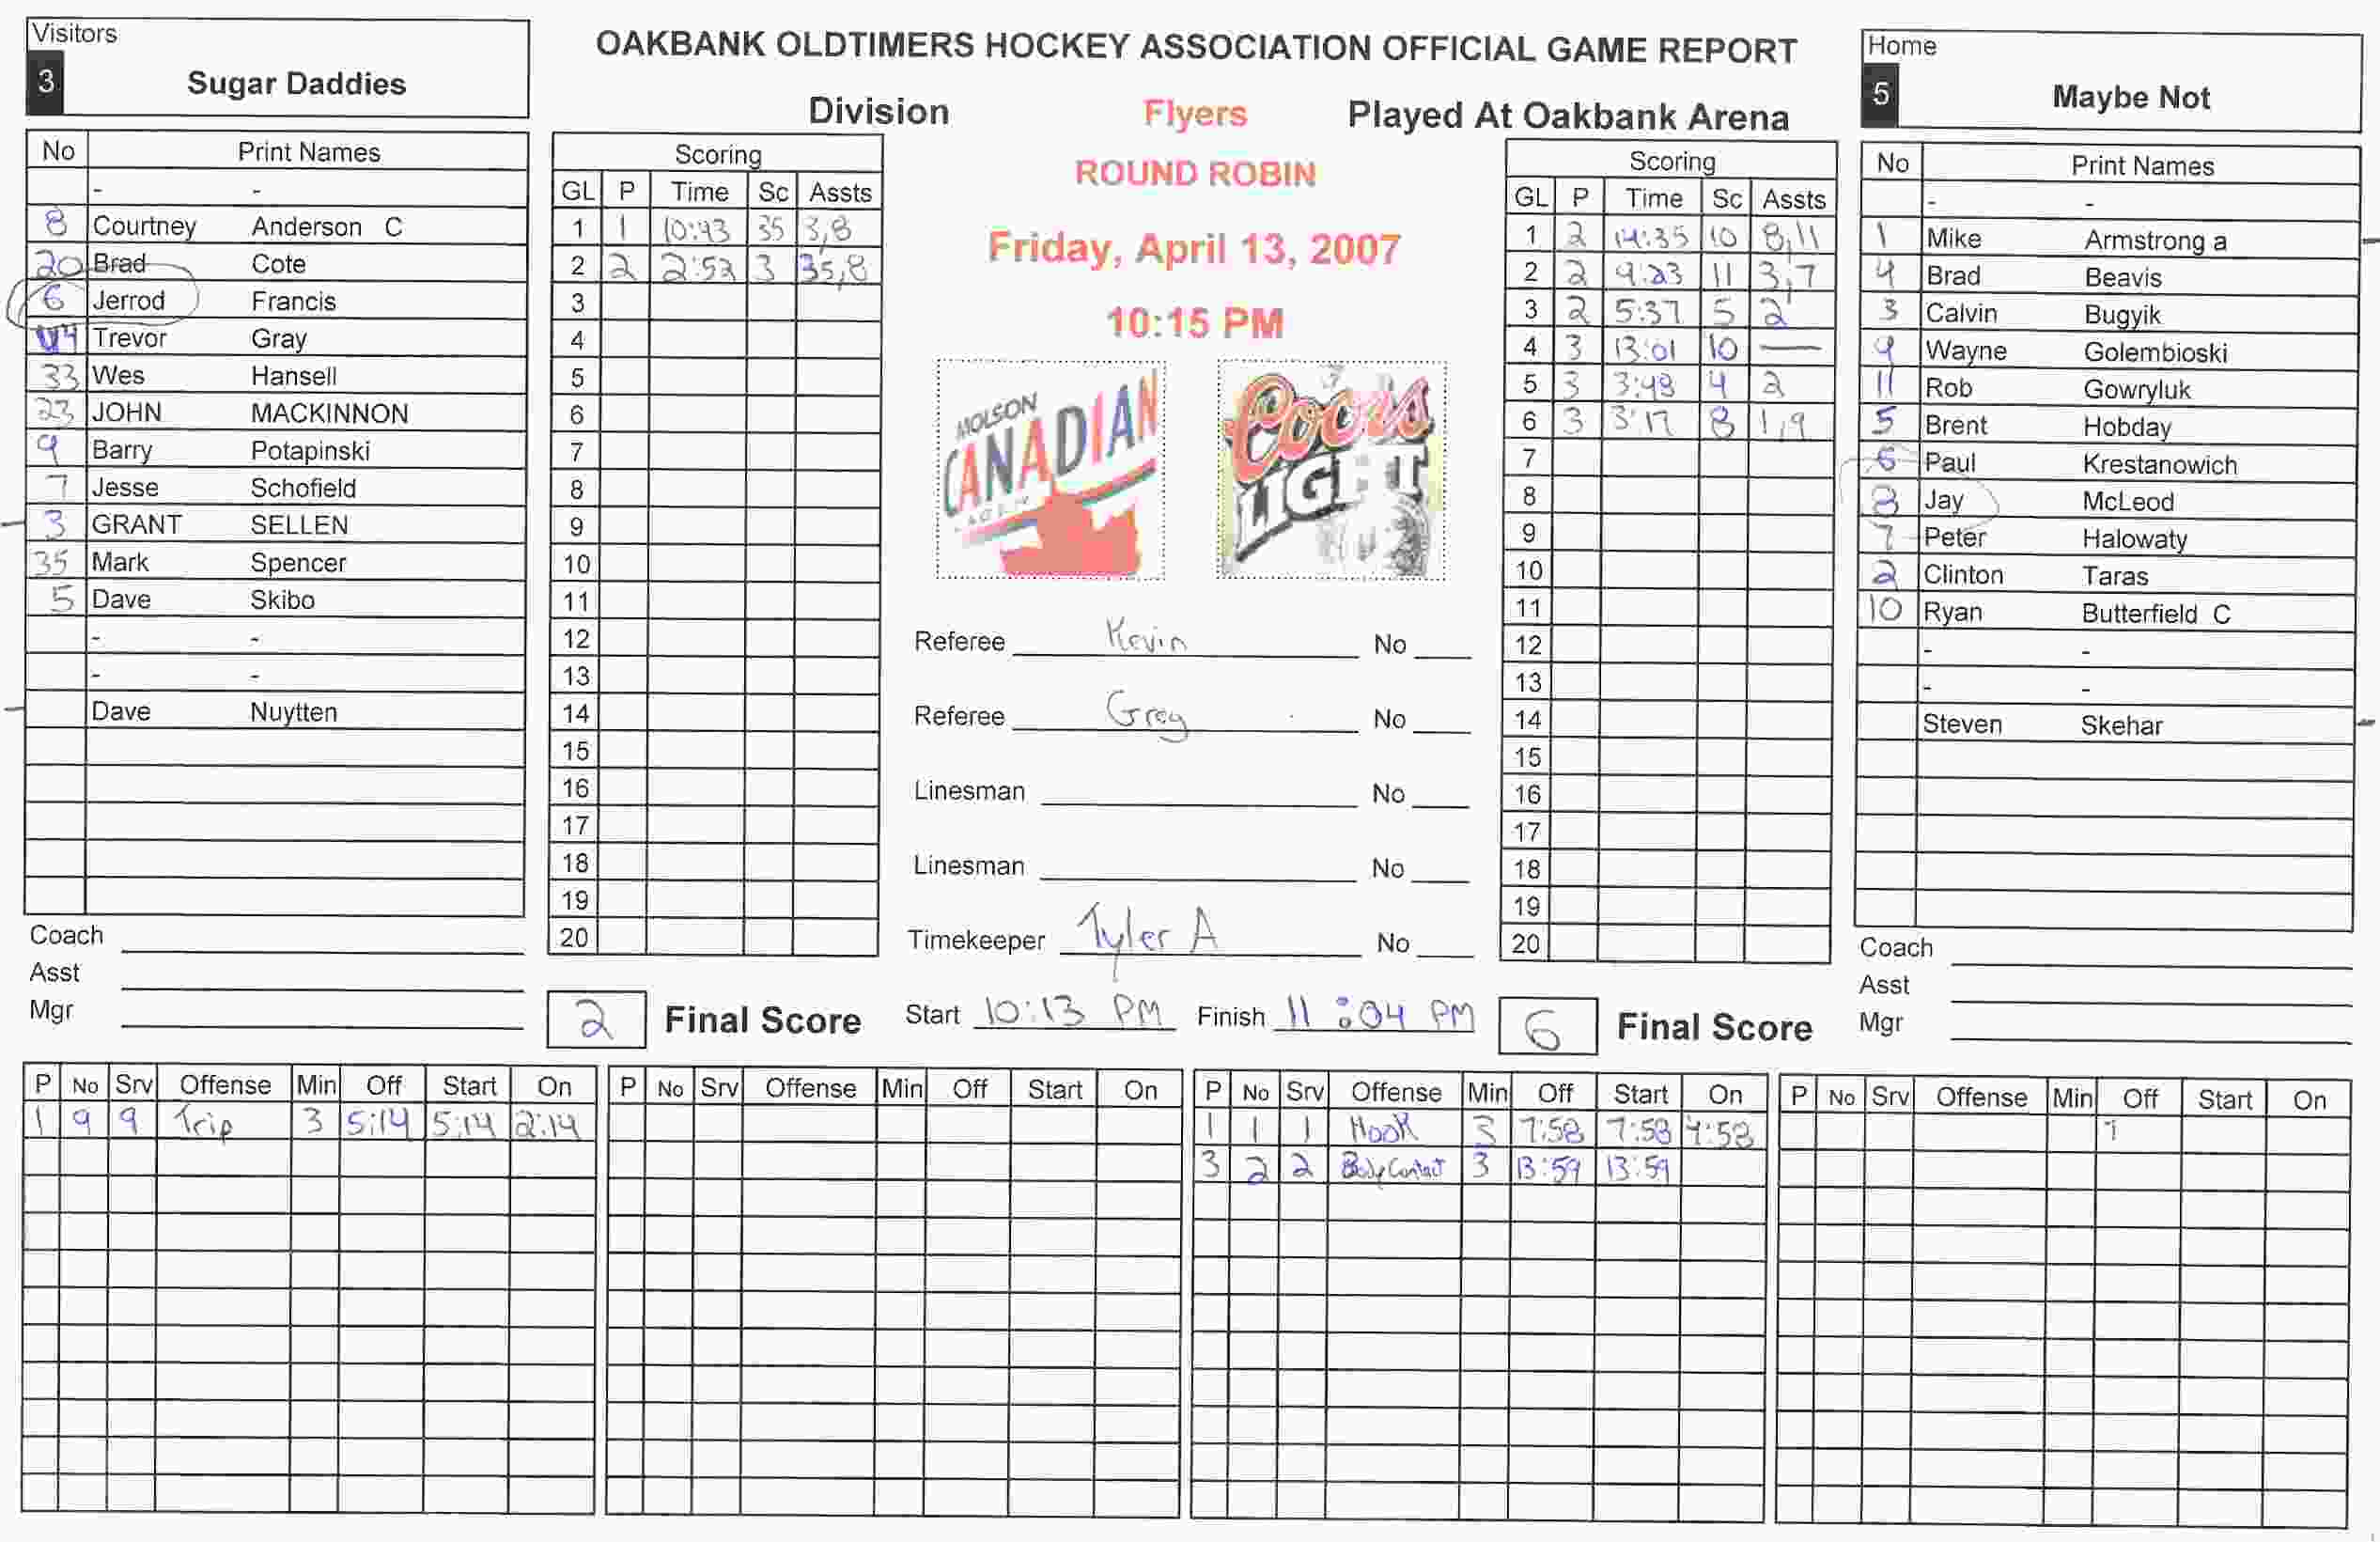 Visitors
3 Sugar Daddies
OAKBANK OLDTIMERS HOCKEY ASSOCIATION OFFICIAL GAME REPORT
Division Flyers Played At Oakbank Arena
ROUND ROBIN
Friday, April 13, 2007
10:15 PM
Home
5 Maybe Not
No Print Names
- -
8 Courtney Anderson C
20 Brad Cote
6 Jerrod Francis
44 Trevor Gray
33 Wes Hansell
23 JOHN MACKINNON
9 Barry Potapinski
7 Jesse Schofield
3 GRANT SELLEN
35 Mark Spencer
5 Dave Skibo
- -
- -
Dave Nuytten
Coach
Asst
Mgr
Scoring
GL P Time Sc Assts
1 1 10:43 35 3,8
2 2 2:52 3 35,8
3
4
5
6
7
8
9
10
11
12
13
14
15
16
17
18
19
20
MOLSON
CANADIAN
Coors
LIGHT
Referee Kevin No
Referee Greg No
Linesman No
Linesman No
Timekeeper Tyler A No
Scoring
GL P Time Sc Assts
1 2 14:35 10 8,11
2 2 9:23 11 3,7
3 2 5:37 5 2
4 3 13:01 10 —
5 3 3:49 4 2
6 3 3:17 8 1,9
7
8
9
10
11
12
13
14
15
16
17
18
19
20
No Print Names
- -
1 Mike Armstrong a
4 Brad Beavis
3 Calvin Bugyik
9 Wayne Golembioski
11 Rob Gowryluk
5 Brent Hobday
6 Paul Krestanowich
8 Jay McLeod
7 Peter Halowaty
2 Clinton Taras
10 Ryan Butterfield C
- -
- -
Steven Skehar
Coach
Asst
Mgr
2 Final Score Start 10:13 PM Finish 11:04 PM 6 Final Score
P No Srv Offense Min Off Start On
1 9 9 Trip 3 5:14 5:14 2:14
P No Srv Offense Min Off Start On
P No Srv Offense Min Off Start On
1 1 1 Hook 3 7:58 7:58 4:58
3 2 2 Body Contact 3 13:59 13:59
P No Srv Offense Min Off Start On
1